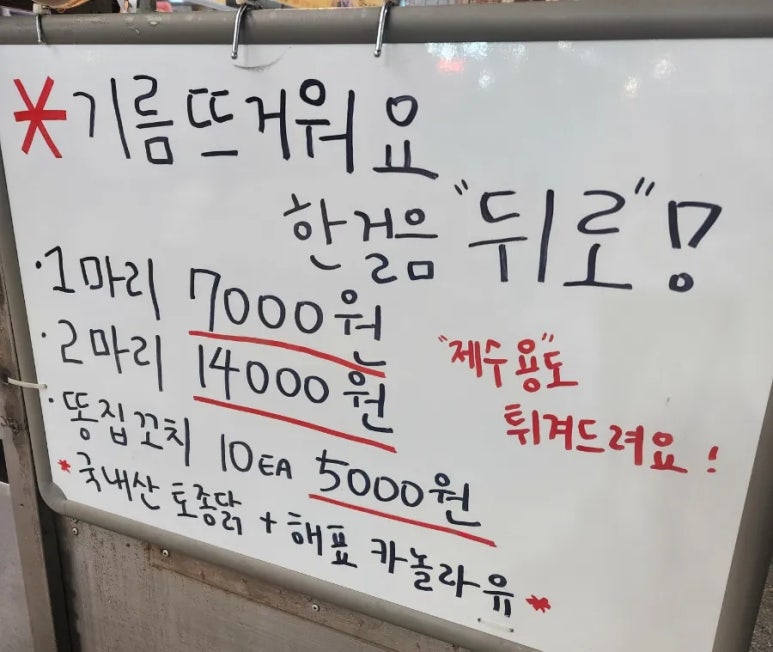 *기름뜨거워요
한걸음 "뒤로"!
·1마리 7000원
·2마리 14000원
"제수용"도
튀겨드려요!
·똥집꼬치 10EA 5000원
*국내산 토종닭 + 해표 카놀라유*